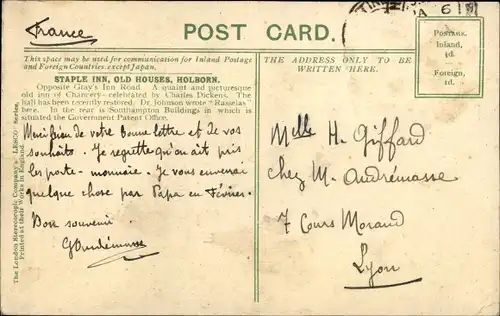 France
POST CARD.
A 6
Postage.
Inland,
½d.
Foreign,
1d.
This space may be used for communication for Inland Postage
and Foreign Countries, except Japan.
THE ADDRESS ONLY TO BE
WRITTEN HERE.
STAPLE INN, OLD HOUSES, HOLBORN.
Opposite Gray's Inn Road. A quaint and picturesque
old inn of Chancery—celebrated by Charles Dickens. The
hall has been recently restored. Dr. Johnson wrote "Rasselas"
here. In the rear is Southampton Buildings in which is
situated the Government Patent Office.
Merci bien de votre bonne lettre et de vos
souhaits. Je regrette qu'on ait pris
les porte-monnaie. Je vous enverrai
quelque chose par Papa en Février.
Bon souvenir.
G Andrémasse
Melle H. Giffard
chez M. Andrémasse
7 Cours Morand
Lyon
The London Stereoscopic Company's "LESCO" Series.
Printed at their Works in England.